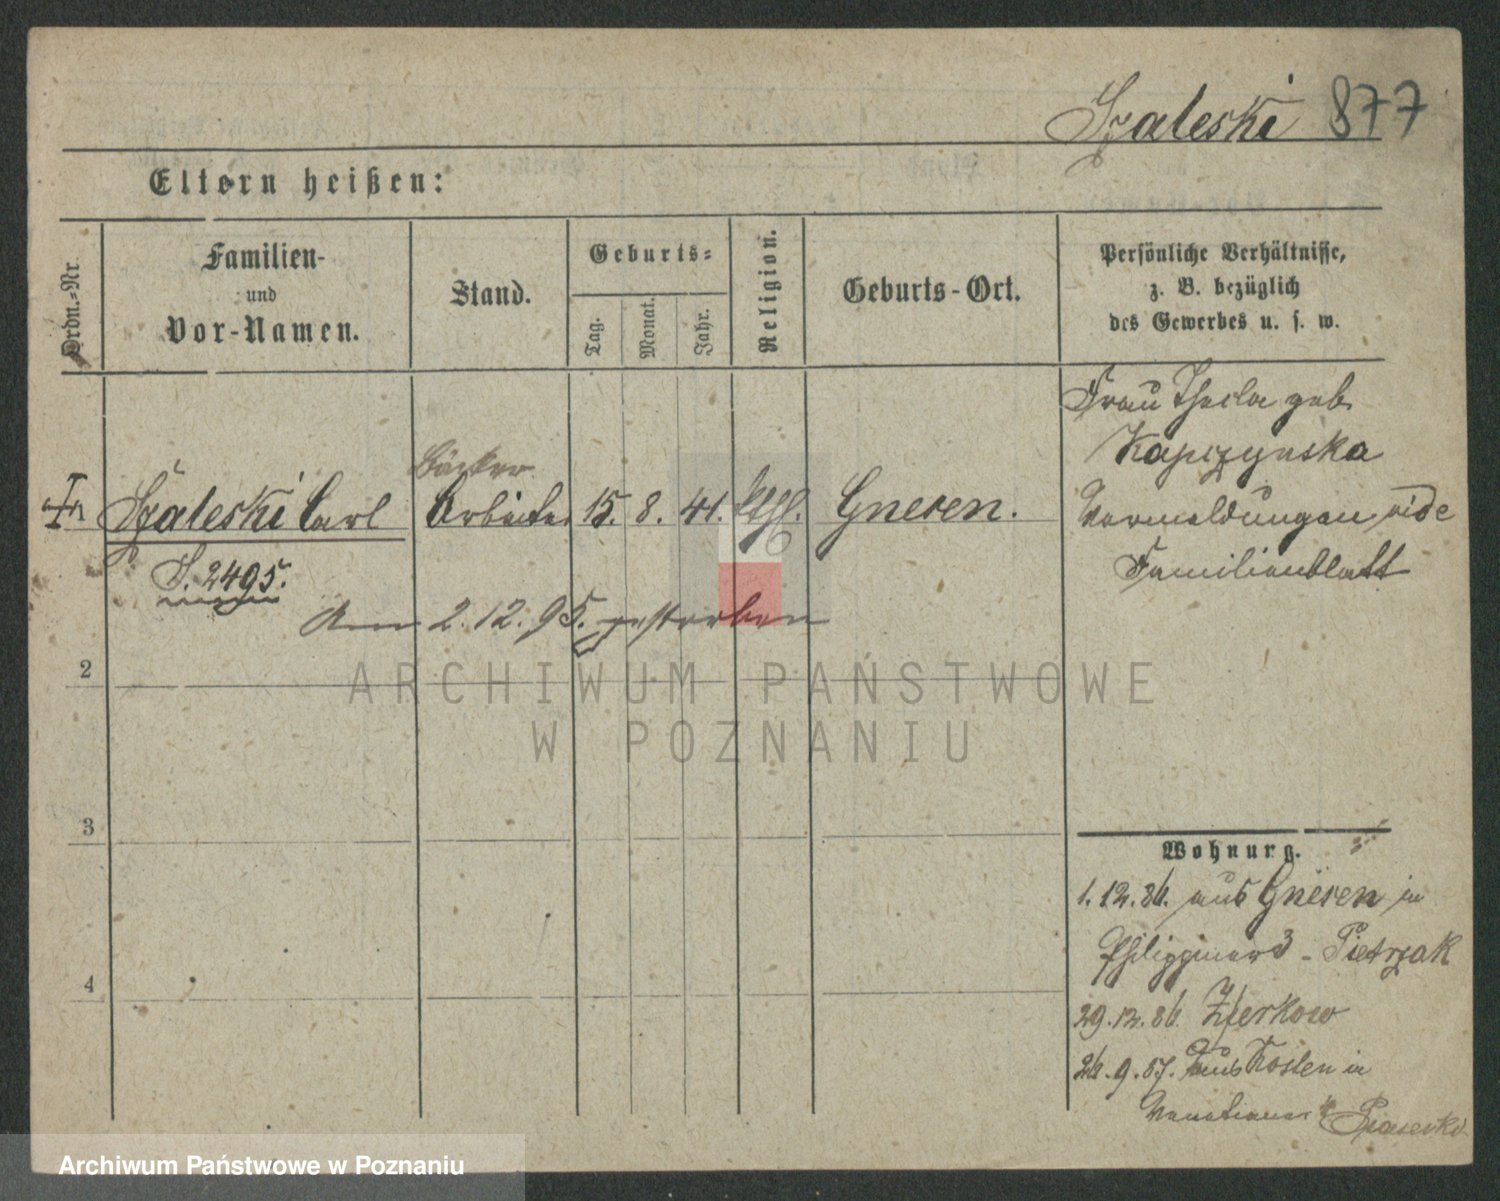 Szaleski 877
Eltern heißen:
Ordn.=Nr.
Familien-
und
Vor-Namen.
Stand.
Geburts=
Tag.
Monat.
Jahr.
Religion.
Geburts-Ort.
Persönliche Verhältnisse,
z. B. bezüglich
des Gewerbes u. s. w.
Frau Thecla geb
Bäcker
Szaleski Carl Arbeiter 15. 8. 41. kthl. Gnesen.
Vermeldungen vide
Familienblatt
S. 2495.
Am 2.12.95. gestorben
2
3
4
Wohnung.
1.12.86. aus Gnesen in
3 - Pietrzak
29.12.86. Zerkow
26.9.87. aus Kosten in
Venetianer
ARCHIWUM PAŃSTWOWE
W POZNANIU
Archiwum Państwowe w Poznaniu